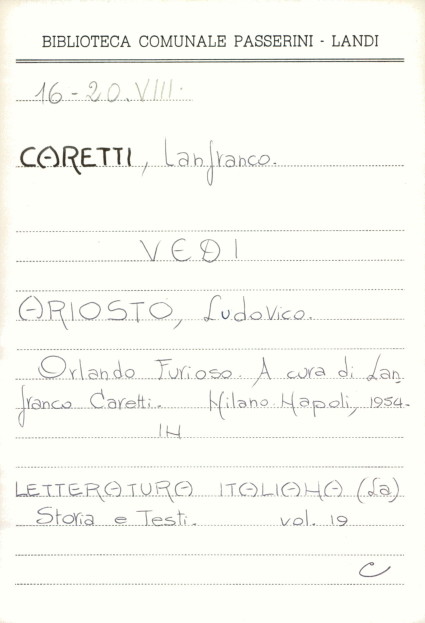 BIBLIOTECA COMUNALE PASSERINI - LANDI
16-20.VIII.
CARETTI, Lanfranco.
VEDI
ARIOSTO, Ludovico.
Orlando Furioso. A cura di Lan-
franco Caretti. Milano Napoli, 1954-
IN
LETTERATURA ITALIANA (La)
Storia e Testi. vol. 19
C